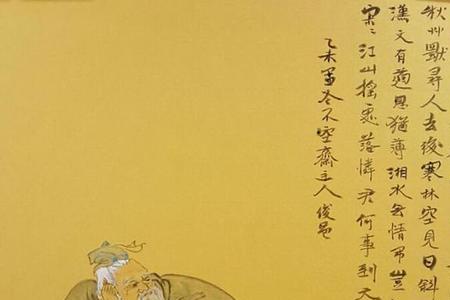 秋艸獨尋人去後寒林空見日斜
漢文有道恩猶薄湘水無情吊豈
寂〻江山搖處落憐君何事到天
乙未孟冬不空齋主人俊邑